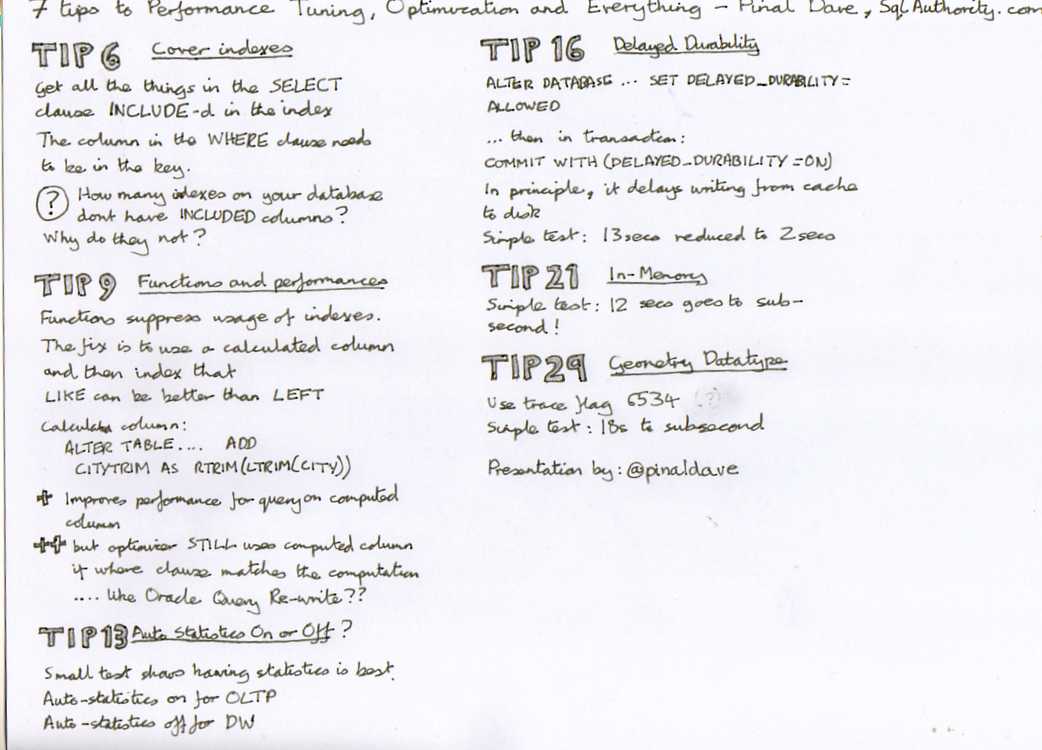 7 tips to Performance Tuning, Optimization and Everything - Pinal Dave, SqlAuthority.com
TIP 6 Cover indexes
Get all the things in the SELECT
clause INCLUDE-d in the index
The column in the WHERE clause needs
to be in the key.
? How many indexes on your database
dont have INCLUDED columns?
Why do they not?
TIP 9 Functions and performances
Functions suppress usage of indexes.
The fix is to use a calculated column
and then index that
LIKE can be better than LEFT
Calculate column:
ALTER TABLE.... ADD
CITYTRIM AS RTRIM(LTRIM(CITY))
+ Improves performance for query on computed
column
++ but optimizer STILL uses computed column
if where clause matches the computation
.... like Oracle Query Re-write??
TIP 13 Auto Statistics On or Off?
Small test shows having statistics is best.
Auto-statistics on for OLTP
Auto-statistics off for DW
TIP 16 Delayed Durability
ALTER DATABASE ... SET DELAYED_DURABILITY=
ALLOWED
... then in transaction:
COMMIT WITH (DELAYED_DURABILITY=ON)
In principle, it delays writing from cache
to disk
Simple test: 13secs reduced to 2secs
TIP 21 In-Memory
Simple test: 12 secs goes to sub-
second!
TIP 29 Geometry Datatype
Use trace flag 6534 (?)
Simple test: 18s to subsecond
Presentation by: @pinaldave